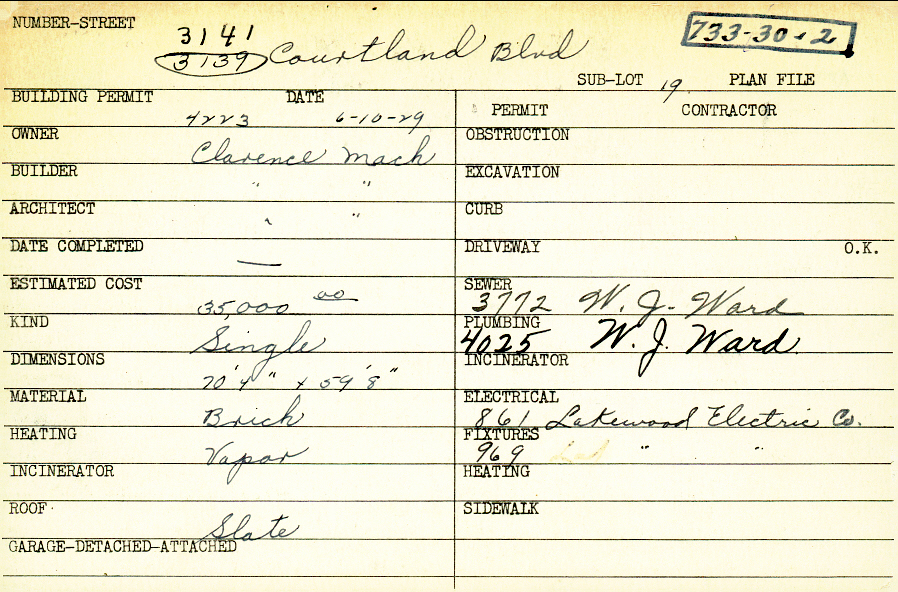 NUMBER-STREET
3141
3139 Courtland Blvd
733-30-2
SUB-LOT 19 PLAN FILE
BUILDING PERMIT DATE
4223 6-10-29
OWNER
Clarence Mach
BUILDER
" "
ARCHITECT
" "
DATE COMPLETED
—
ESTIMATED COST
35,000 00
KIND
Single
DIMENSIONS
70'4" x 59'8"
MATERIAL
Brick
HEATING
Vapor
INCINERATOR
ROOF
Slate
GARAGE-DETACHED-ATTACHED
PERMIT CONTRACTOR
OBSTRUCTION
EXCAVATION
CURB
DRIVEWAY O.K.
SEWER
3772 W. J. Ward
PLUMBING
4025 W. J. Ward.
INCINERATOR
ELECTRICAL
861 Lakewood Electric Co.
FIXTURES
969 " "
HEATING
SIDEWALK